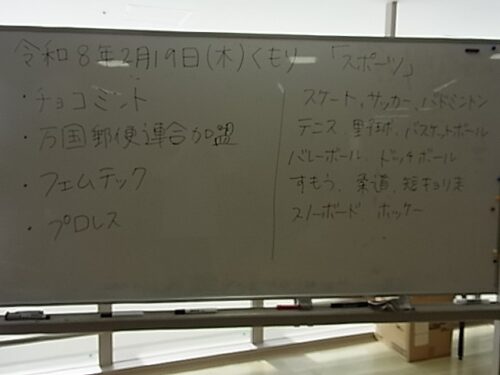 令和8年2月19日(木)くもり
・チョコミント
・万国郵便連合加盟
・フェムテック
・プロレス
「スポーツ」
スケート、サッカー、バドミントン
テニス、野球、バスケットボール
バレーボール、ドッヂボール
すもう、柔道、短キョリ走
スノーボード ホッケー